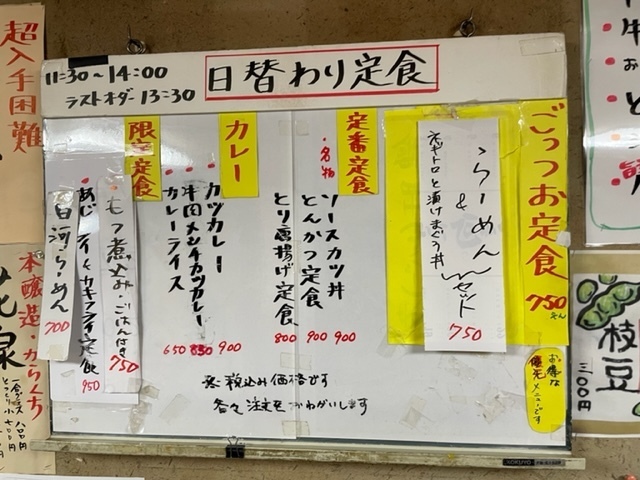 11:30～14:00
ラストオーダー 13:30
日替わり定食
ごっつお定食
750
らーめん
&
ネギトロと漬けまぐろ丼
セット
750
お得な
優先メニューです
定番定食
・名物
ソースカツ丼
900
とんかつ定食
900
とり唐揚げ定食
800
カレー
カツカレー
900
牛肉メンチカツカレー
850
カレーライス
650
限定定食
・もつ煮込み・ごはん付き
750
・あじフライ&カキフライ定食
950
白河らーめん
700
税込み価格です
各々注文をおねがいします
超入手困難
本醸造・からくち
花泉
枝豆
三〇〇円
KOKUYO